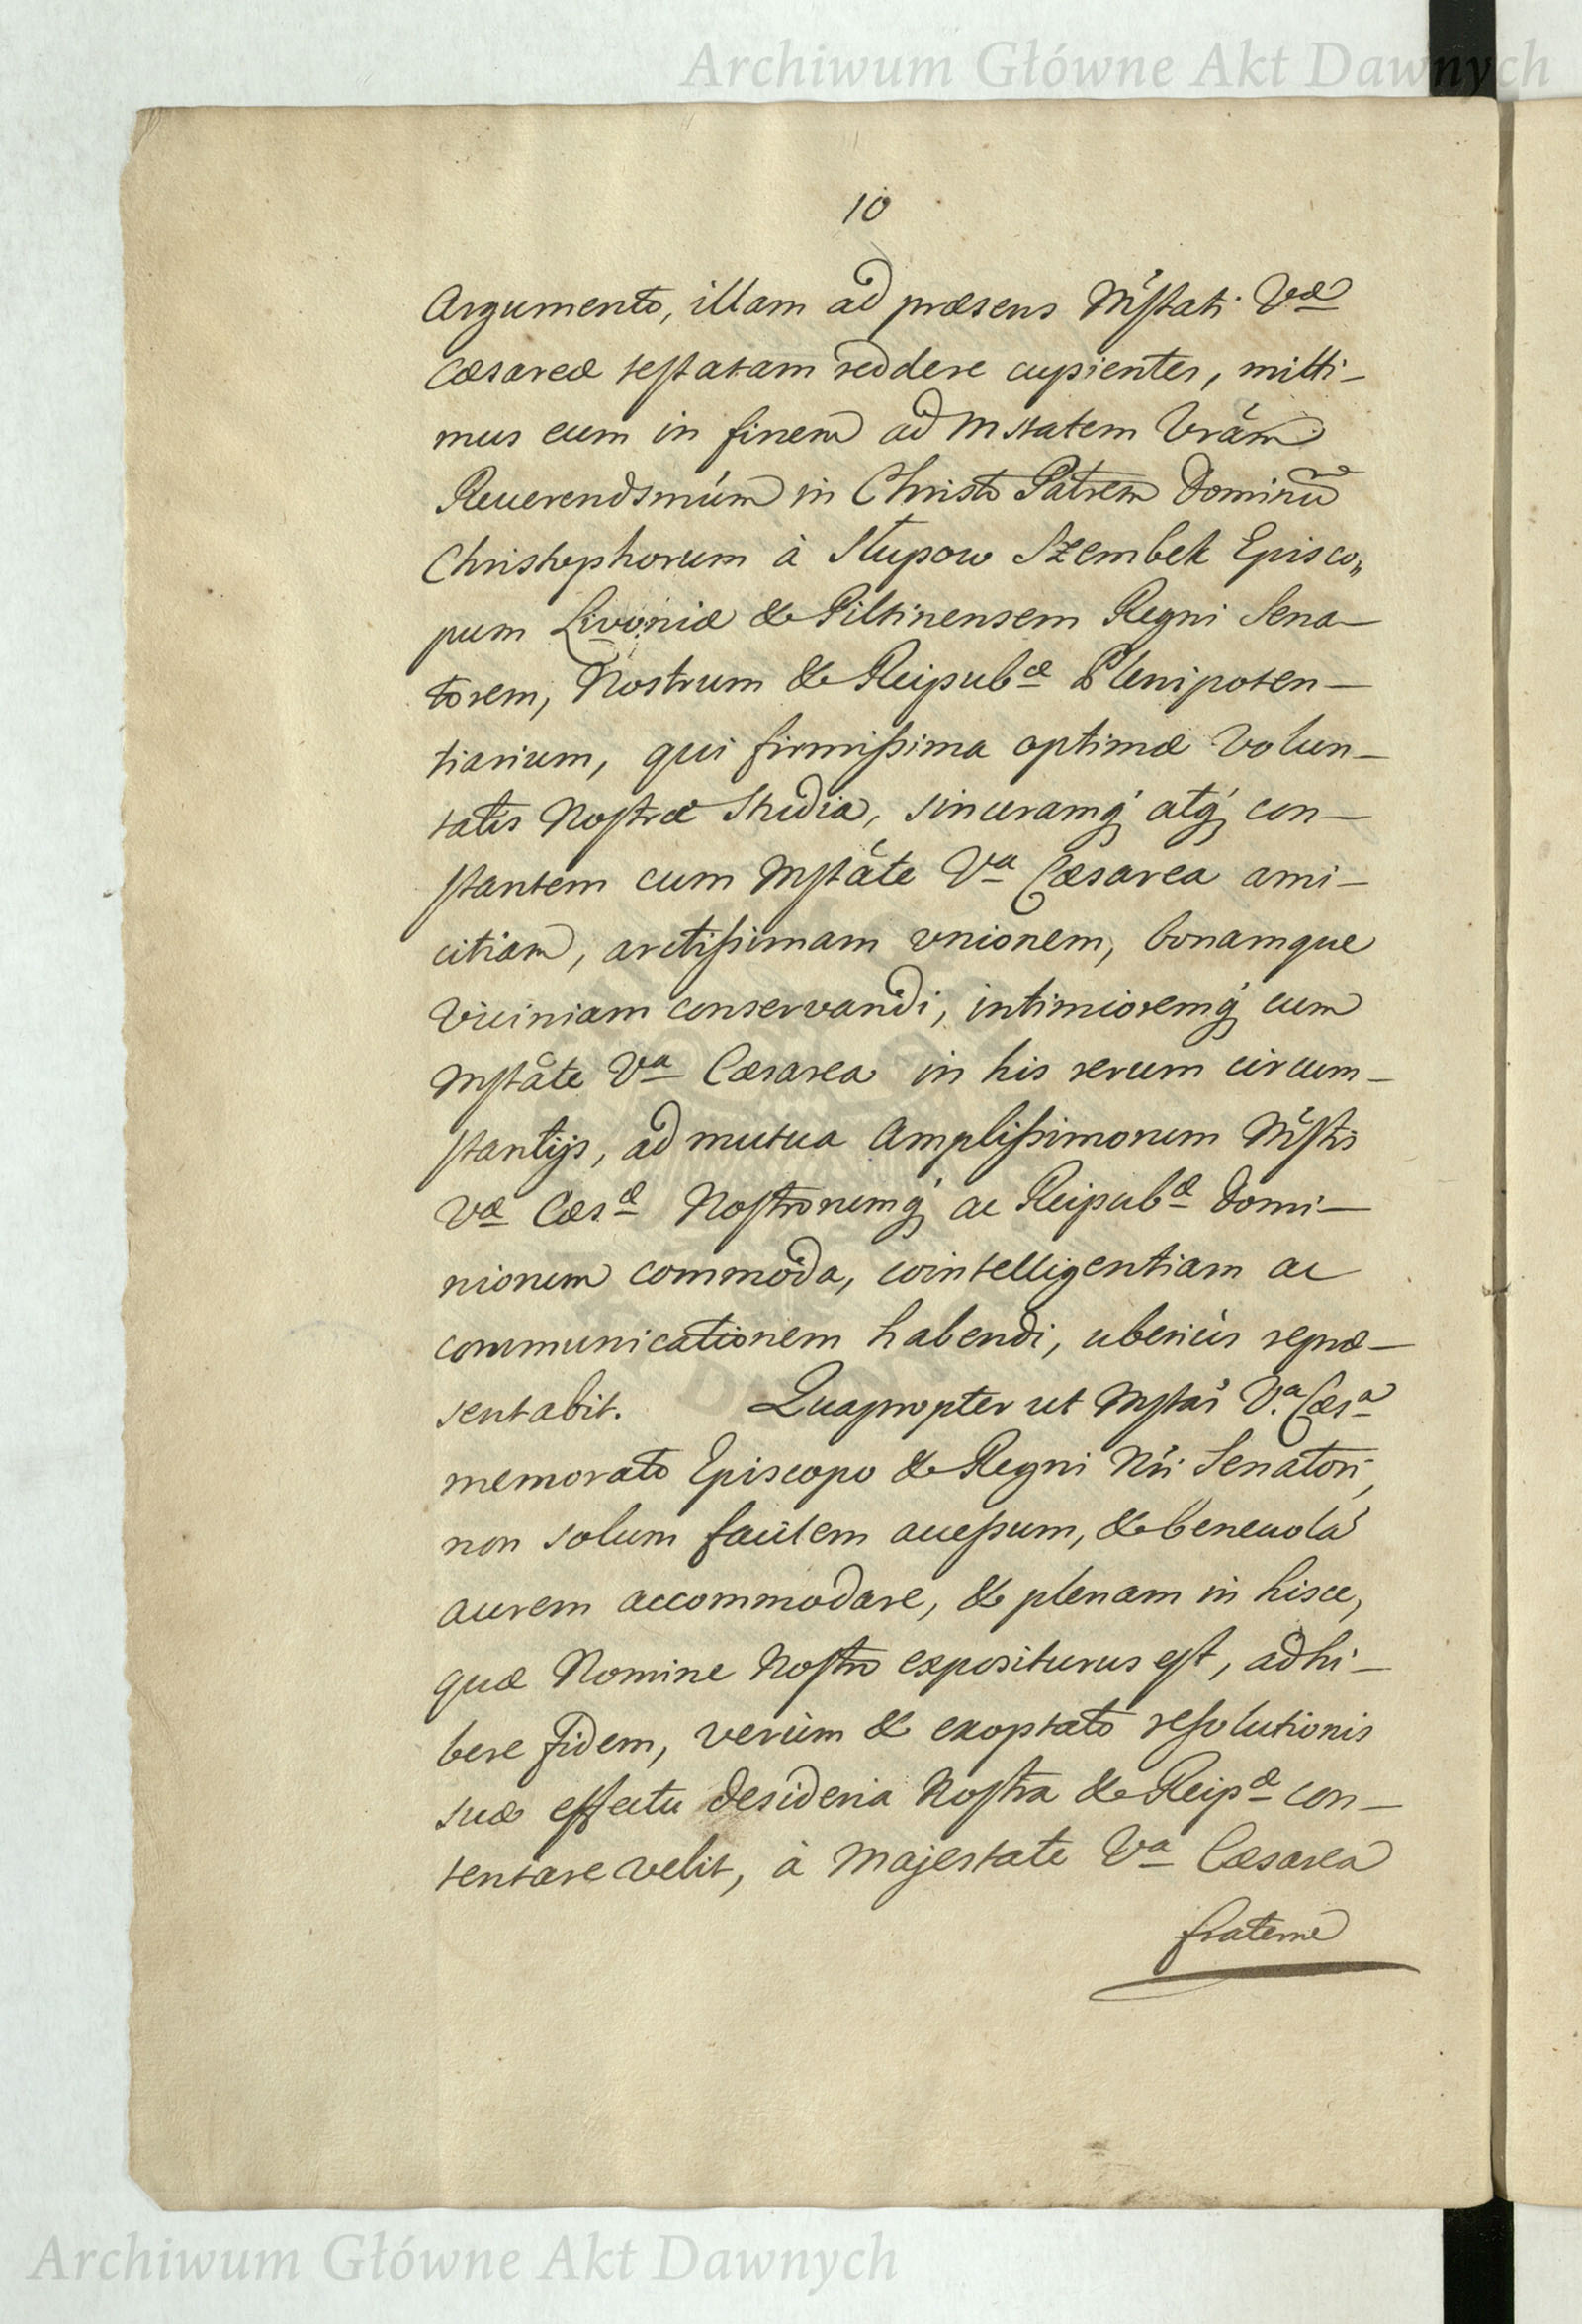 Archiwum Główne Akt Dawnych
10
Argumento, illam ad præsens M̃stati Væ
Cæsareæ testatam reddere cupientes, mitti-
mus eum in finem ad Mstatem Vrãm
Reuerendsmúm in Christo Patrem Dominũ
Christophorum à Słupow Szembek Episco„
pum Livoniæ & Piltinensem Regni Sena-
torem, Nostrum & Reipubæ Plenipoten-
tiarium, qui firmissima optimæ Volun-
tatis Nostræ Studia, sinceramq́ atq́ con-
stantem cum Mstãte Va Cæsarea ami-
citiam, arctissimam vnionem, bonamque
Viciniam conservandi, intimioremq́ cum
Mstãte Va Cæsarea in his rerum circum-
stantijs, ad mutua Amplissimorum M̃stis
Væ Cæs.æ Nostrorumq́ ac Reipubæ Domi-
niorum commoda, cointelligentiam ac
communicationem habendi, uberiùs repræ-
sentabit. Quapropter ut Mstas̃ V.a Cæsa
memorato Episcopo & Regni Nři Senatori,
non solum facilem accessum, & beneuolã
aurem accommodare, & plenam in hisce,
quæ Nomine Nostro expositurus est, adhi-
bere fidem, verùm & exoptato resolutionis
suæ effectu desideria Nostra & Reipæ con-
tentare velit, à Majestate Va Cæsarea
fraterne
Archiwum Główne Akt Dawnych